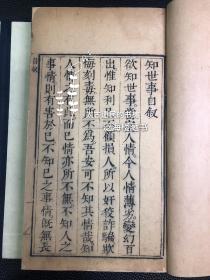 知世事自叙
欲知世事當知人情今人情薄劣變幻百
出惟知利己不顧損人所以奸狡詐騙欺
侮刻毒無所不爲吾安可不知其情哉知
人情之善而已情亦所不無不知人之
事情則有害於己不知己之事情則無
自叙